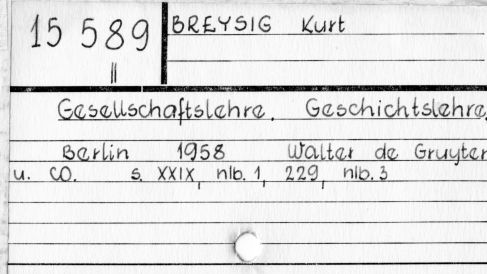 15 589
II
BREYSIG Kurt
Gesellschaftslehre, Geschichtslehre,
Berlin 1958 Walter de Gruyter
u. CO. s. XXIX, nlb. 1, 229, nlb. 3